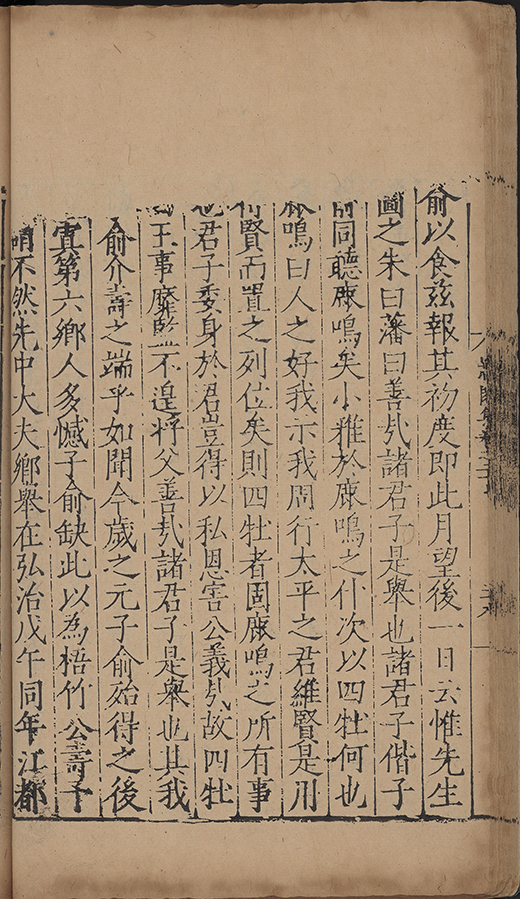 俞以食茲報其初度即此月望後一日云惟先生
圖之朱曰藩曰善哉諸君子是舉也諸君子偕子
俞同聽鹿鳴矣小雅於鹿鳴之什次以四牡何也
鹿鳴曰人之好我示我周行太平之君維賢是用
得賢而置之列位矣則四牡者固鹿鳴之所有事
也君子委身於君豈得以私恩害公義哉故四牡
曰王事靡盬不遑將父善哉諸君子是舉也其我
俞介壽之端乎如聞今歲之元子俞殆得之後
寘第六鄉人多憾子俞缺此以為梧竹公壽予
曰不然先中大夫鄉舉在弘治戊午同年江都